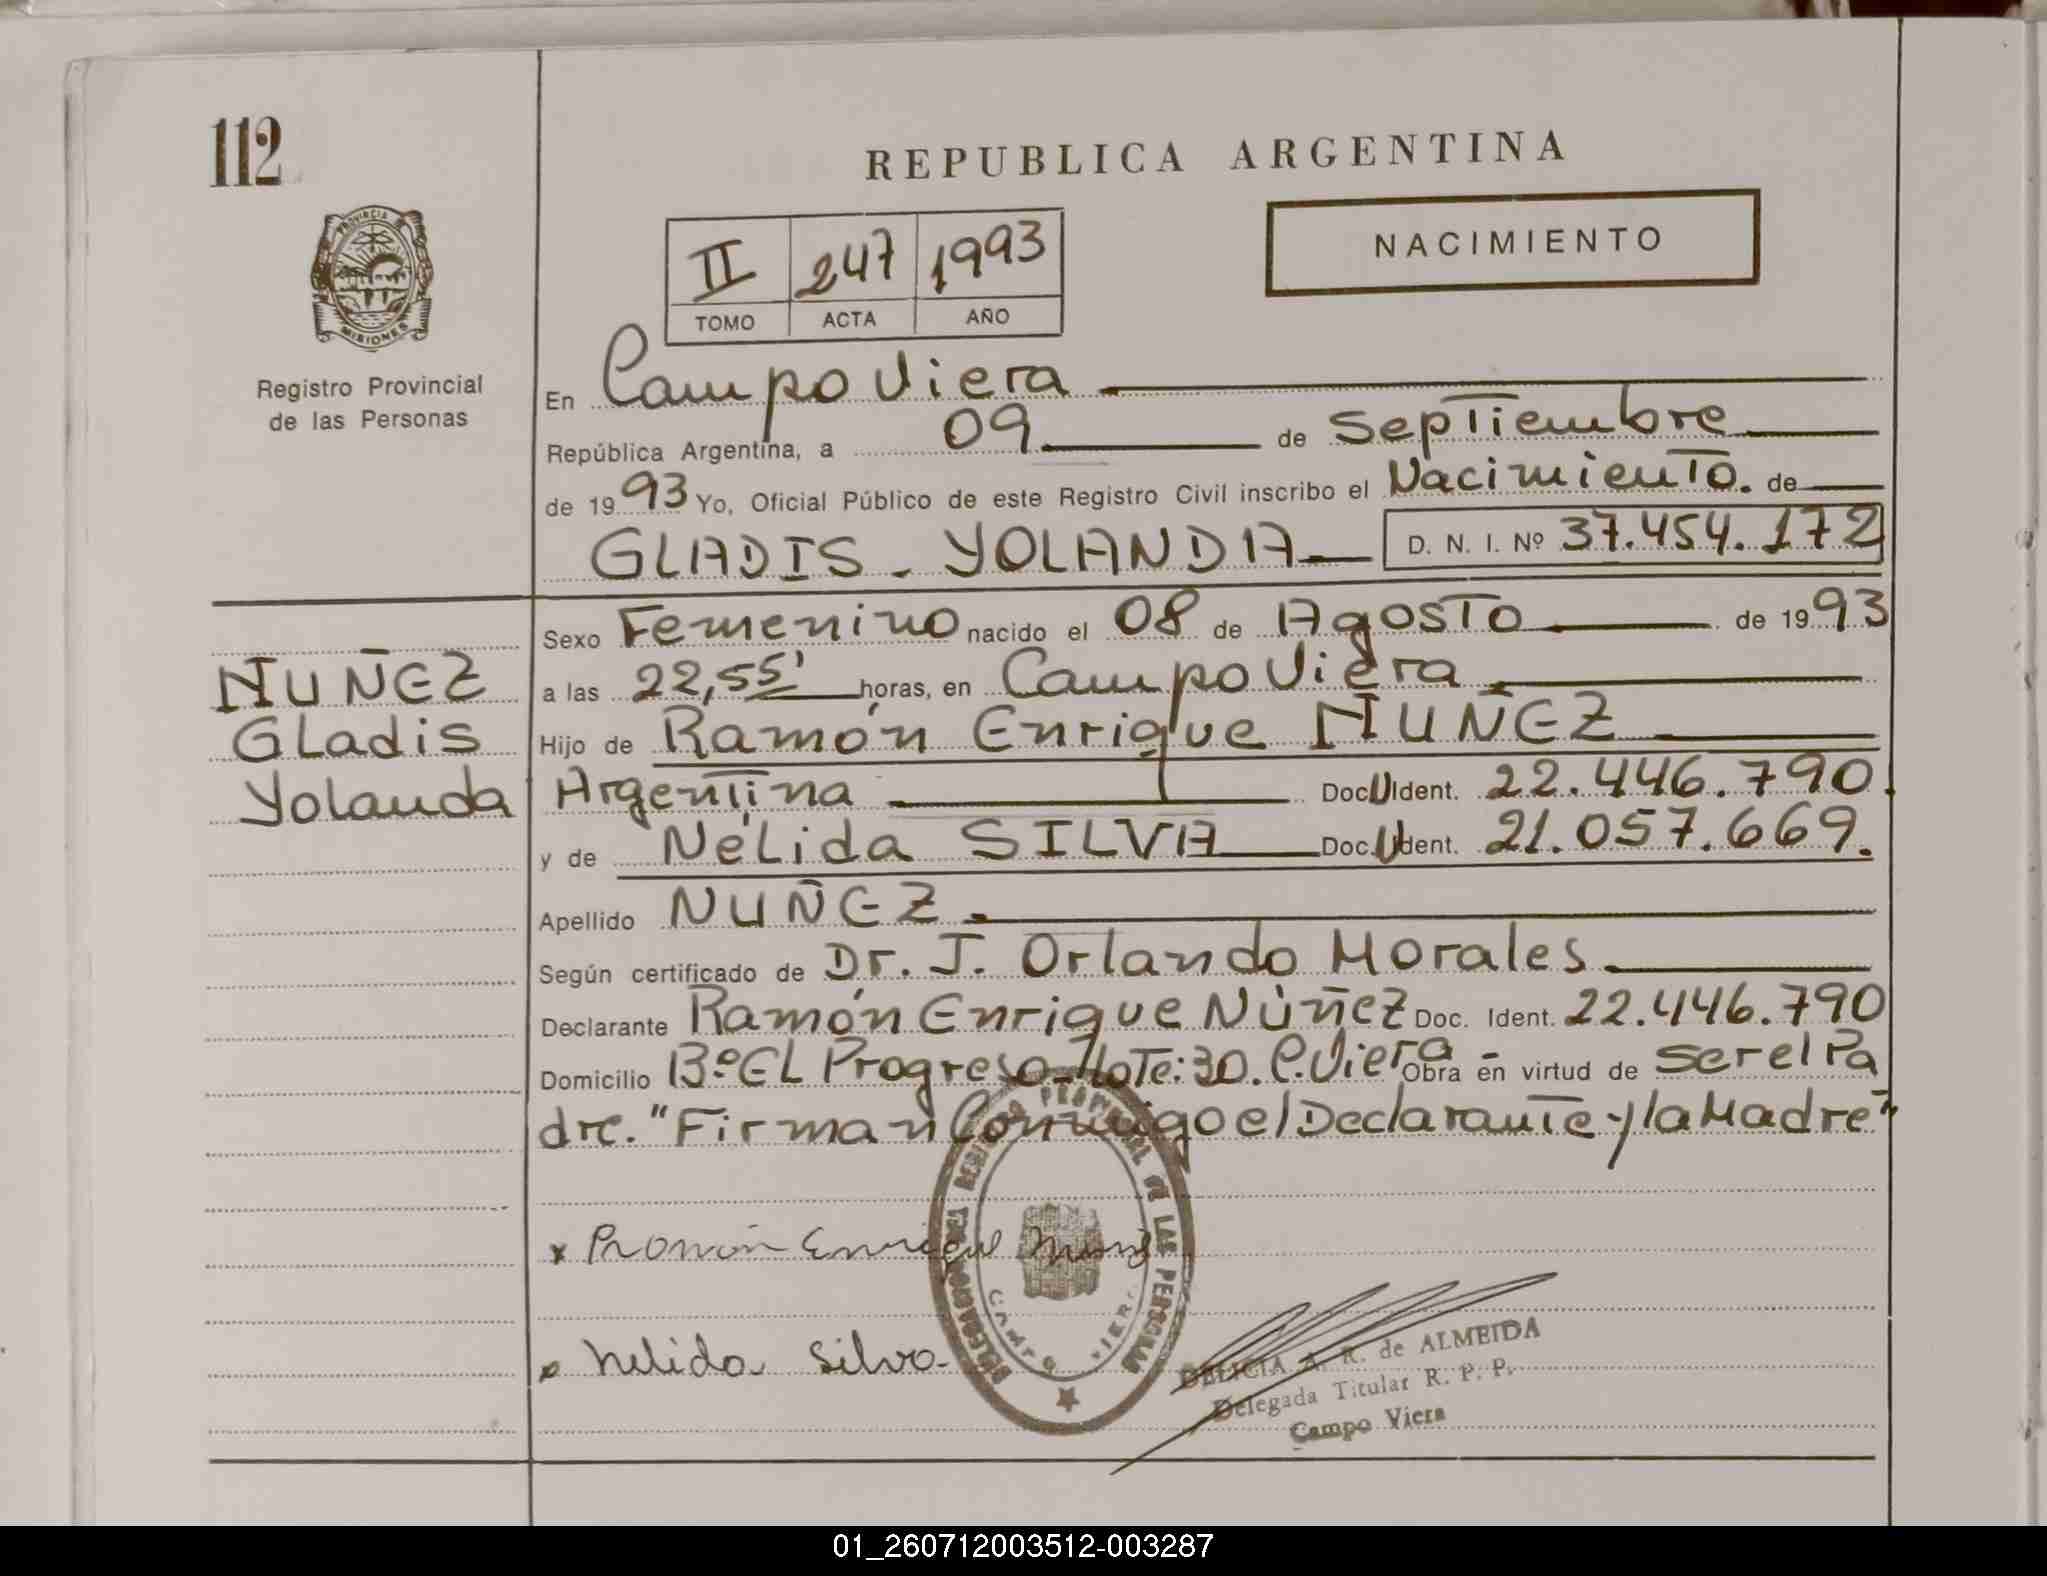 112
REPUBLICA ARGENTINA
NACIMIENTO
II 247 1993
TOMO ACTA AÑO
PROVINCIA DE
MISIONES
Registro Provincial
de las Personas
En Campo Viera
República Argentina, a 09 de Septiembre
de 1993 Yo, Oficial Público de este Registro Civil inscribo el Nacimiento. de
GLADIS - YOLANDA D. N. I. Nº 37.454.172
Sexo Femenino nacido el 08 de Agosto de 1993
NUÑEZ
Gladis
Yolanda
a las 22,55' horas, en Campo Viera
Hijo de Ramón Enrique NUÑEZ
Argentina Doc. U Ident. 22.446.790.
y de Nélida SILVA Doc. U Ident. 21.057.669.
Apellido NUÑEZ.
Según certificado de Dr. J. Orlando Morales.
Declarante Ramón Enrique Núñez Doc. Ident. 22.446.790
Domicilio Bº EL Progreso-LoTe: 30. C. Viera Obra en virtud de ser el Pa
dre. "Firman Conmigo el Declarante y la Madre"
DELEGACION DEL REGISTRO PROVINCIAL DE LAS PERSONAS
CAMPO VIERA
x Ramón Enrique Nuñez
x Nelida Silva-
DELICIA A. R. de ALMEIDA
Delegada Titular R. P. P.
Campo Viera
01_260712003512-003287